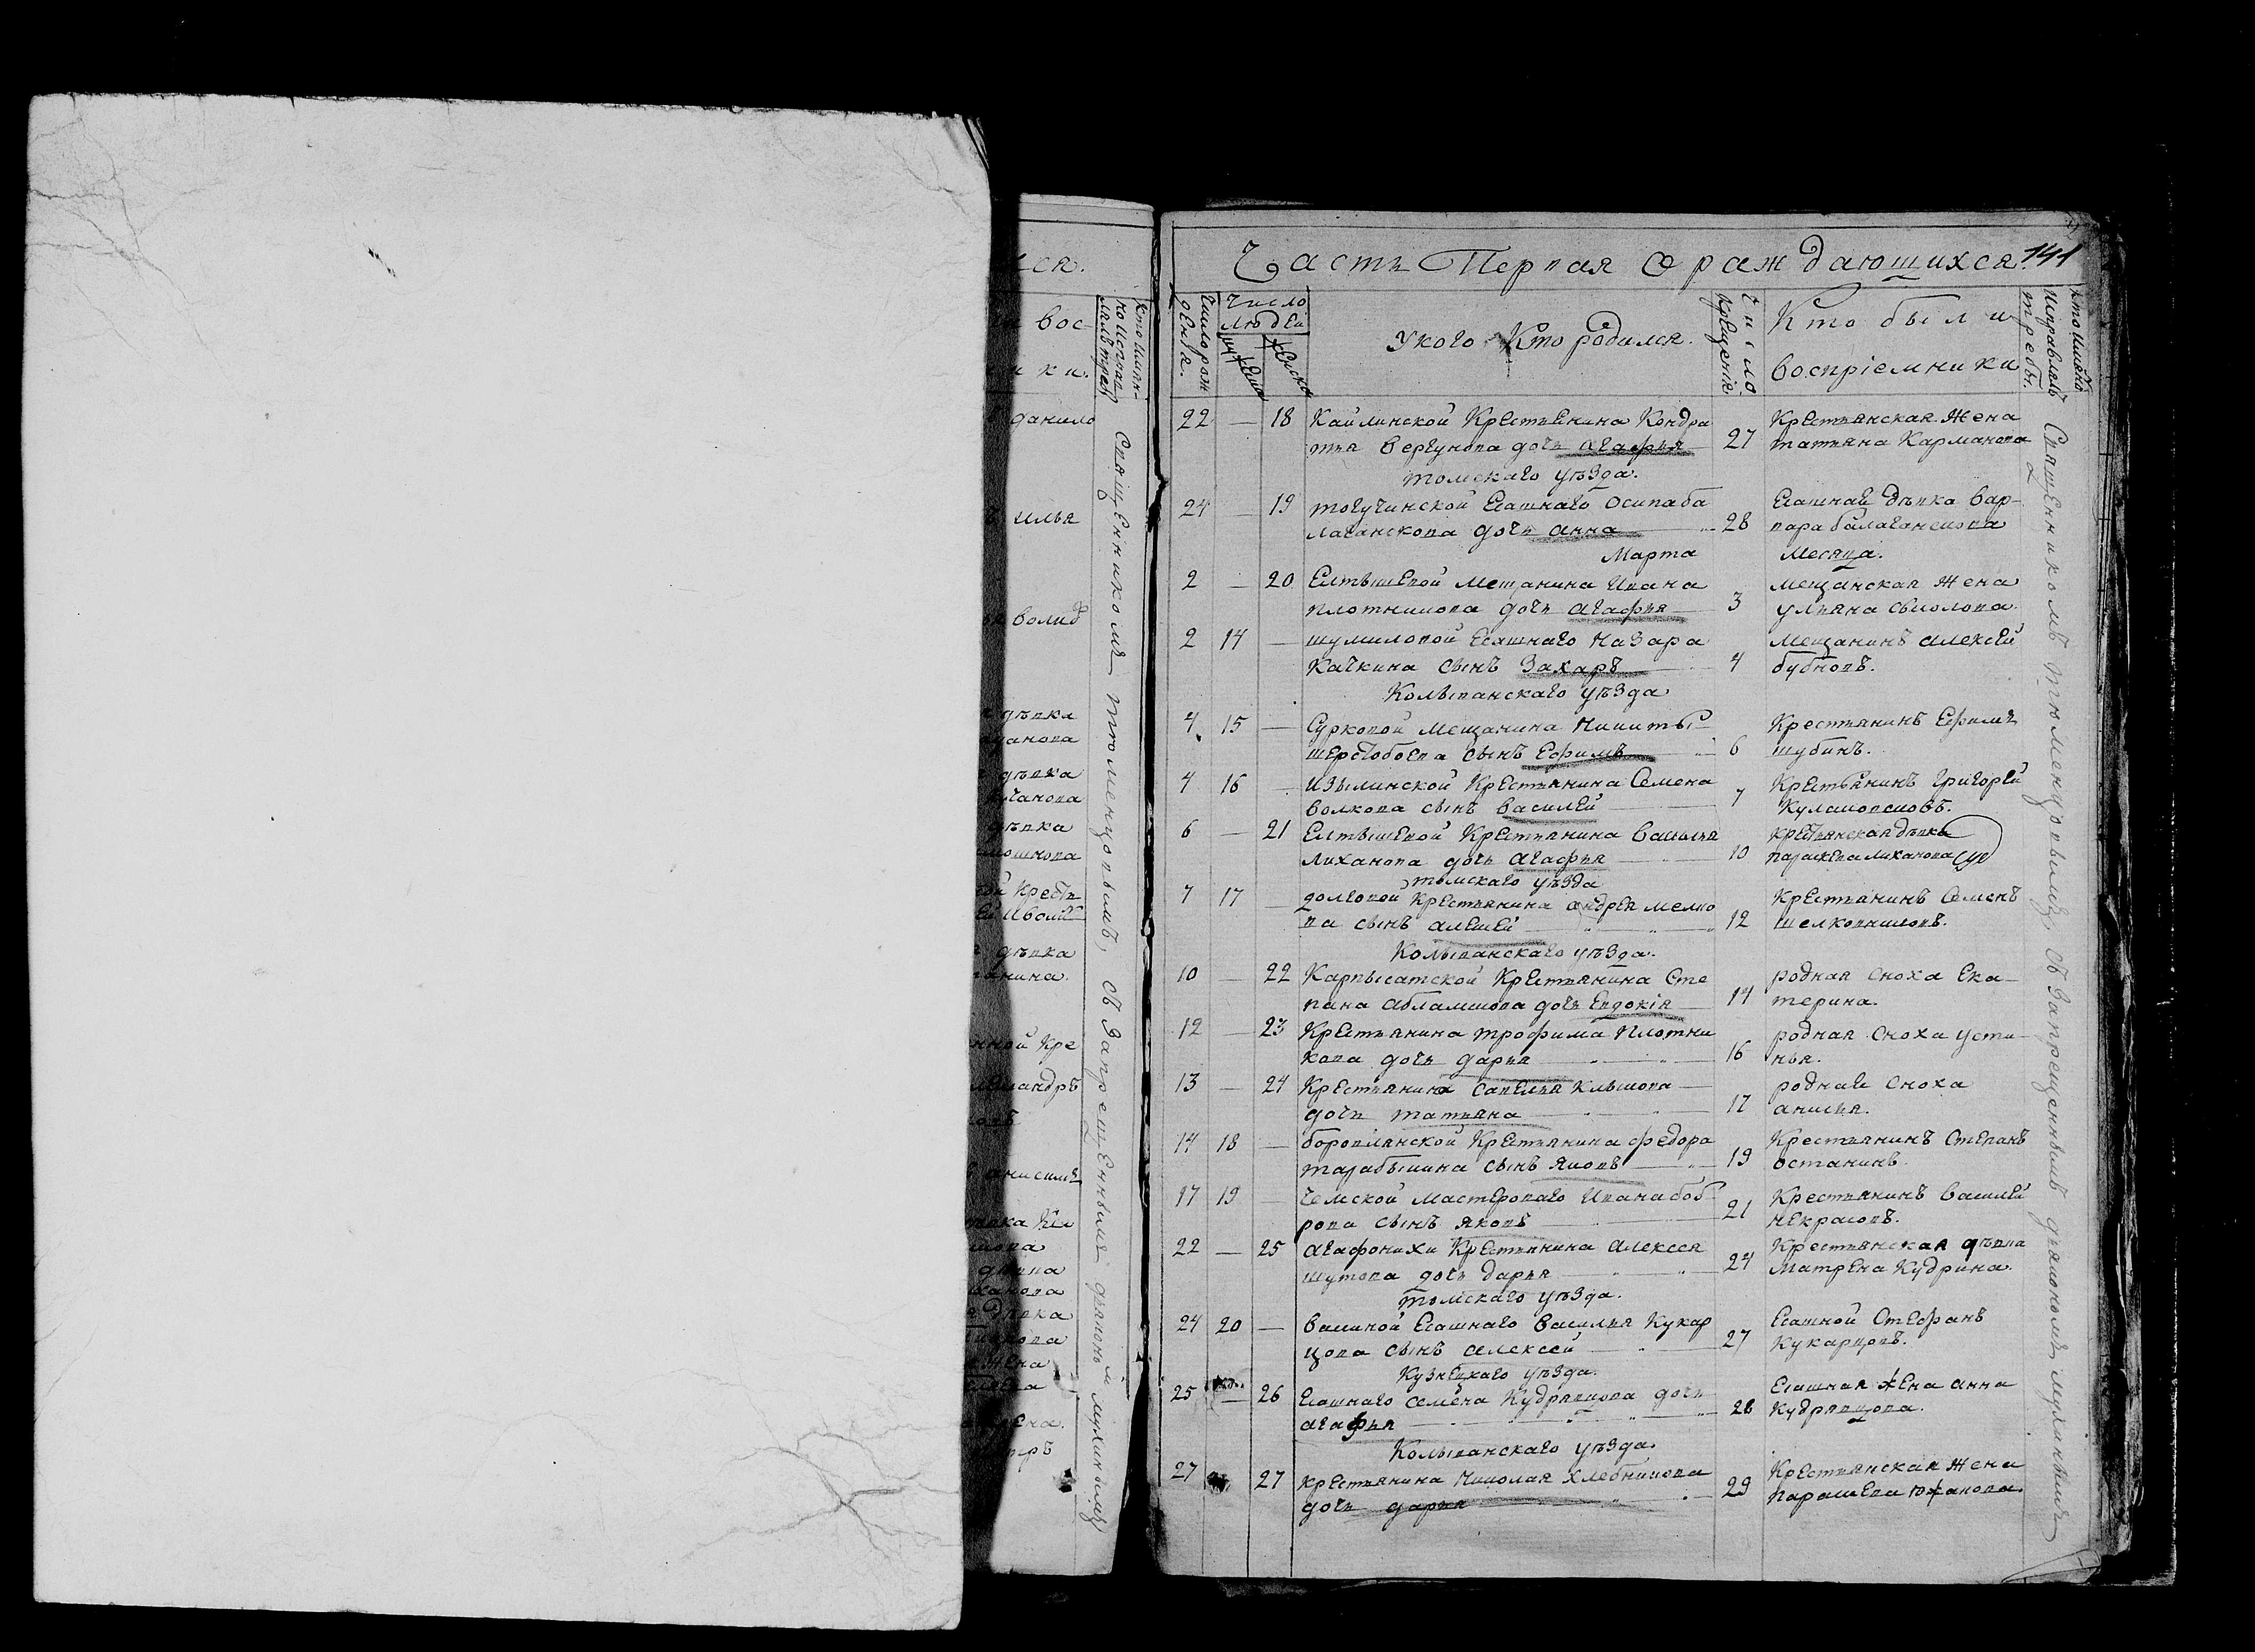 Часть Первая О раждающихся.
141
Число рож
денiя.
Число
людей
муж
женско
У кого Кто родился.
Число
крещенiя.
Кто были
воспрiемники
Кто имяно
Исправлялъ
требы.
22 — 18 Кайлинской Крестьянина Кондра
тья Вергунова дочь агафья 27
Крестьянская Жена
татьяна Карманова
томскаго уѣзда.
24 — 19 тогучинской Есашнаго Осипа ба
лаганскова дочь анна 28
Есашная дѣвка вар-
вара балаганскова
Марта Месяца.
2 — 20 Елтышевой мещанина Ивана
плотникова дочь агафья 3
мещанская Жена
ульяна Смолова.
2 14 — шумиловой Есашнаго Назара
Качкина сынъ Захаръ 4
Мещанинъ алексей
бубновъ.
Колыванскаго уѣзда
4 15 — Сурковой мещанина Никиты
шерстобоева сынъ Ефимъ 6
Крестьянинъ Ефимъ
шубинъ.
4 16 Изылинской Крестьянина Семена
волкова сынъ василей 7
Крестьянинъ григорей
6 — 21 Елтышевой Крестьянина василья
лиханова дочь агафья 10
Крестьянская дѣвка
параскева лиханова
томскаго уѣзда
7 17 — долговой Крестьянина андрея мелко
ва сынъ алексей 12
Крестьянинъ Семенъ
шелковниковъ.
Колыванскаго уѣзда.
10 — 22 Карпысатской Крестьянина Сте
пана абламскова дочь Евдокiя 14
родная сноха Ека-
терина.
12 — 23 Крестьянина трофима плотни
кова дочь дарья 16
родная сноха усти-
нья.
13 — 24 Крестьянина Савелья Клыкова
дочь татьяна 17
родная сноха
анисья.
14 18 — боровлянской Крестьянина федора
тарабыкина сынъ яковъ 19
Крестьянинъ Степанъ
останинъ.
17 19 — Чемской мастероваго Ивана боб-
рова сынъ яковъ 21
Крестьянинъ василей
некрасовъ.
22 — 25 агафонихи Крестьянина алексея
шутова дочь дарья 24
Крестьянская дѣвка
матрена Кудрина.
томскаго уѣзда.
24 20 — васиной Есашнаго василья Кукар
цова сынъ алексей 27
Есашной Стефанъ
Кукарцовъ.
Кузнецкаго уѣзда.
25 — 26 Есашнаго семена Кудрявцова дочь
агафья 28
Есашная жена анна
Кудрявцова.
Колыванскаго уѣзда.
27 27 Крестьянина Николая хлебникова
дочь дарья 29
Крестьянская жена
парасква южакова.
Священникомъ тюменцовымъ, съ Запрещеннымъ дьякономъ
Священникомъ тюменцовымъ, съ Запрещеннымъ дьякономъ
данило
илья
дѣвка
дѣвка
дѣвка
дѣвка
анисимъ